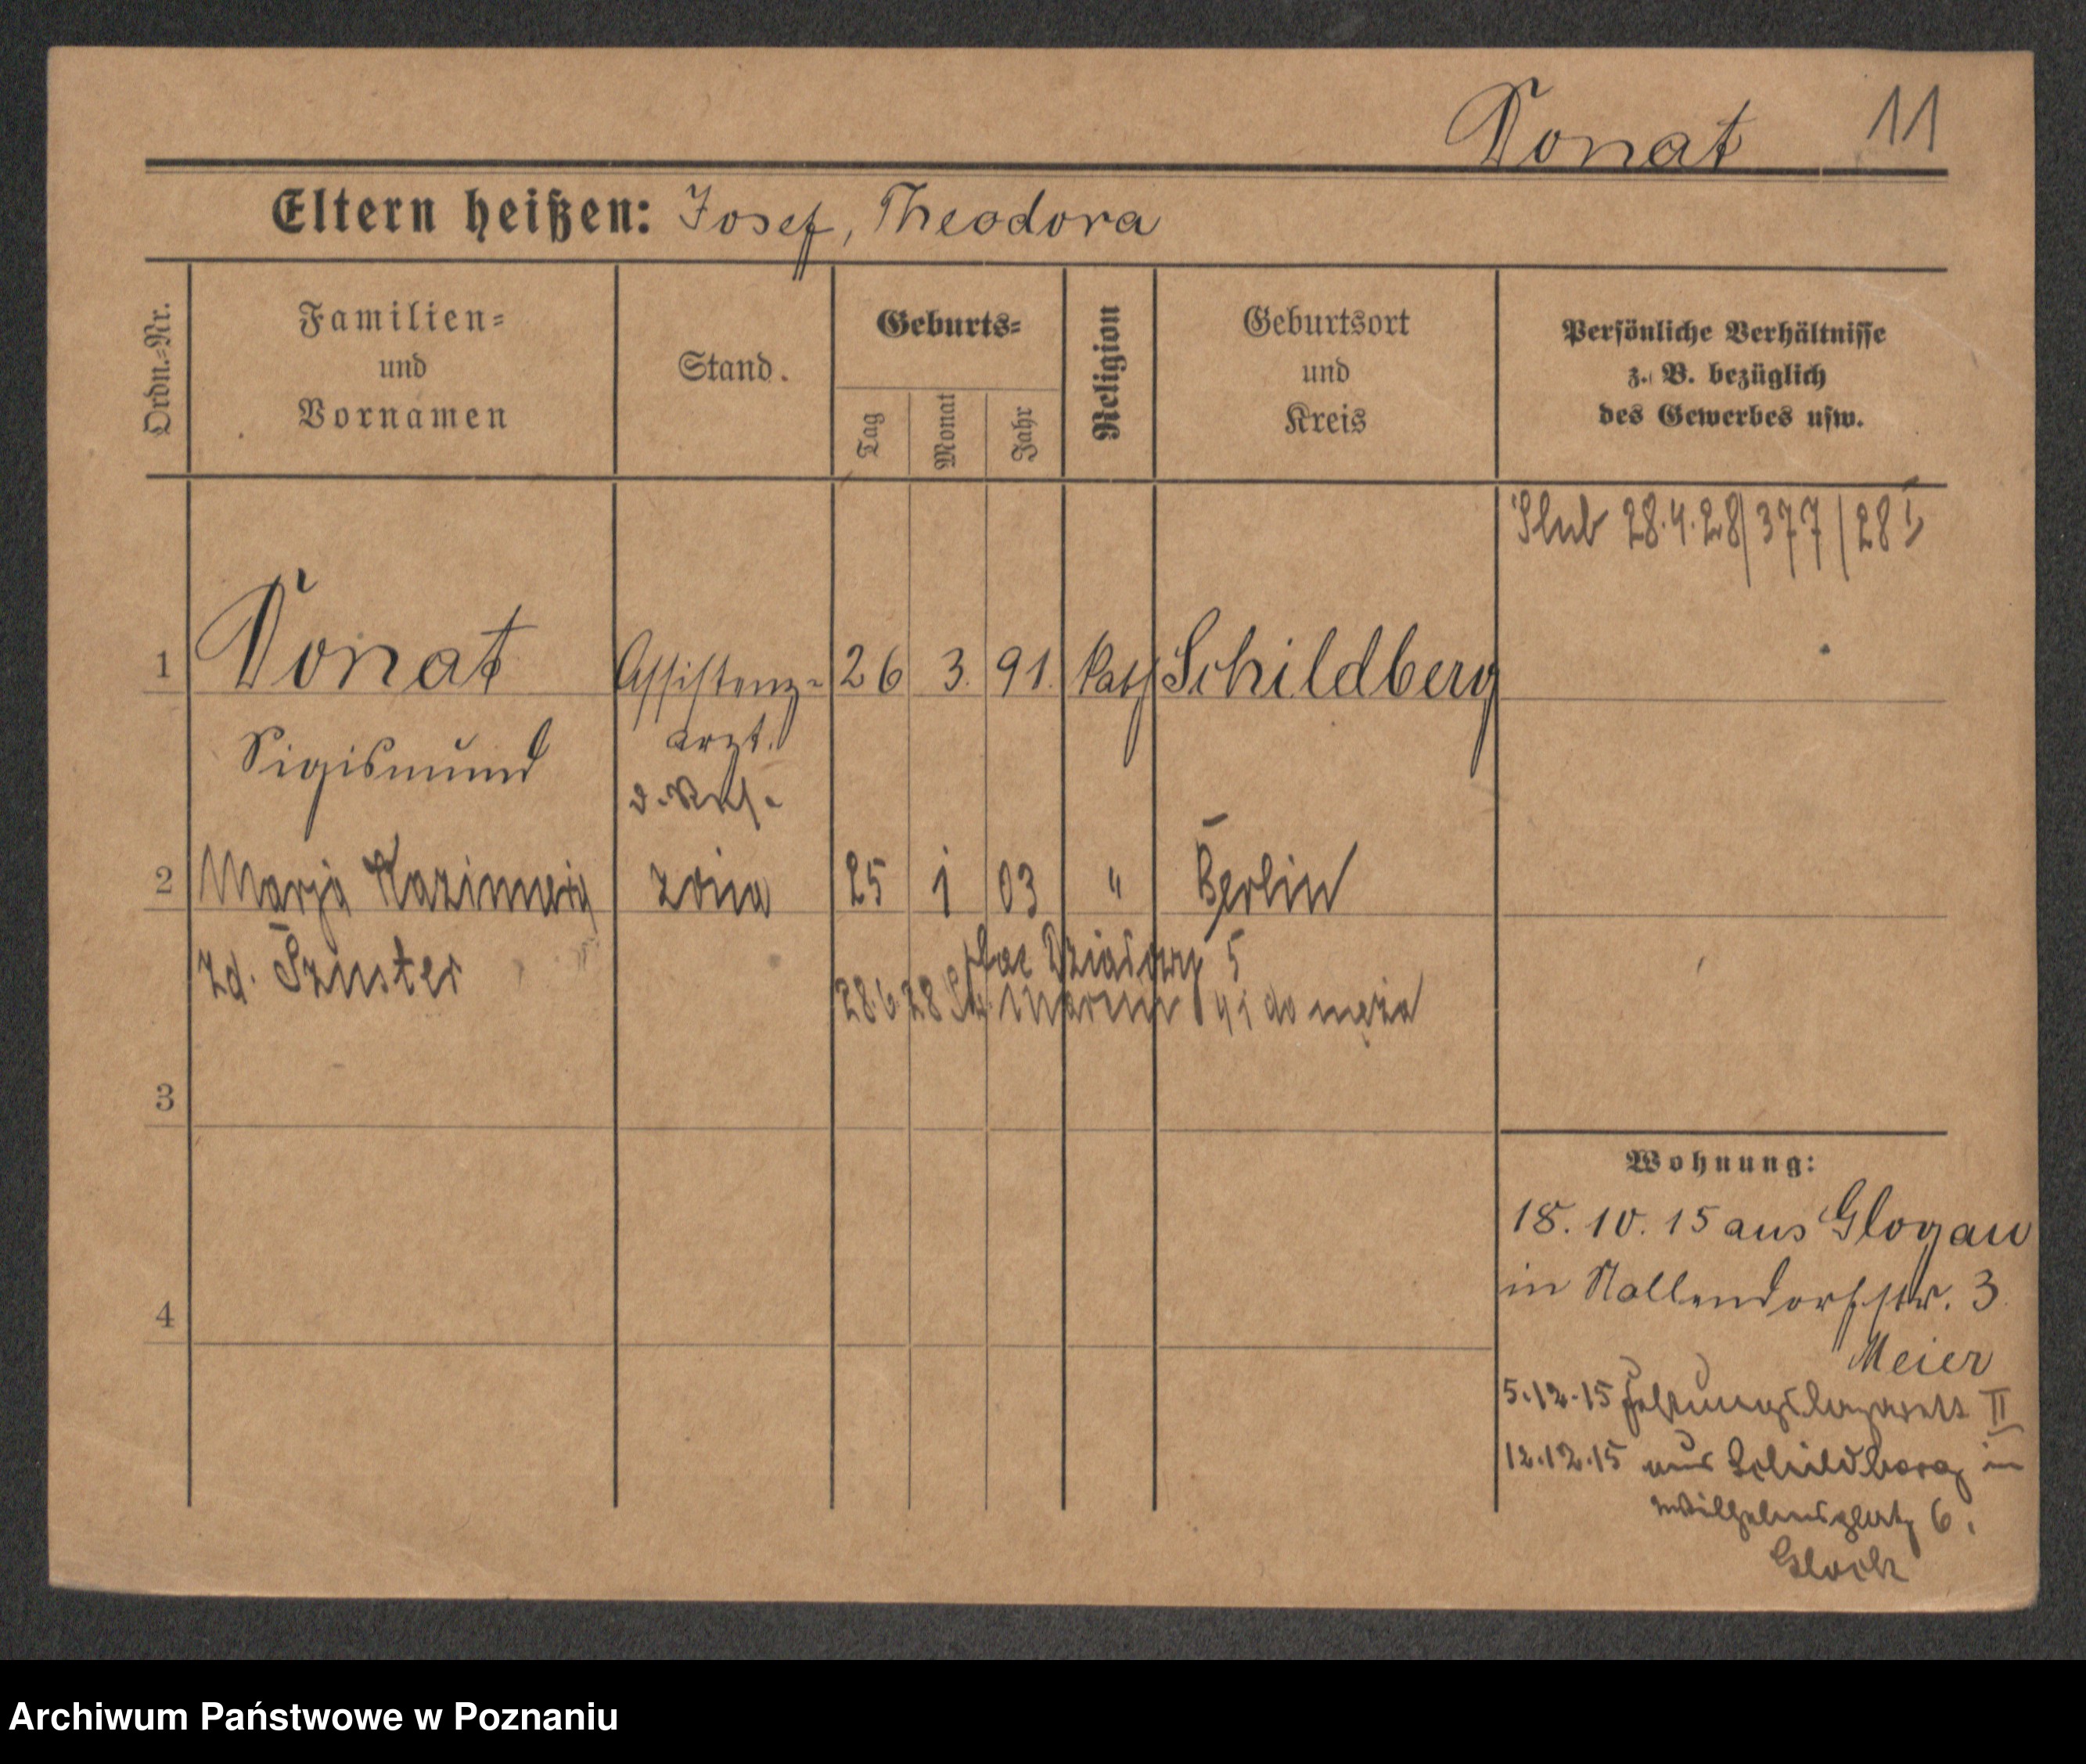 Donat 11
Eltern heißen: Josef, Theodora
Ordn.-Nr.
Familien-
und
Vornamen
Stand.
Geburts-
Tag
Monat
Jahr
Religion
Geburtsort
und
Kreis
Persönliche Verhältnisse
z. B. bezüglich
des Gewerbes usw.
Ślub 28.4.28/377/28
1 Donat Assistenz- 26 3. 91. kath Schildberg
Sigismund arzt.
2 Marja Kazimiera żona 25 1 03 " Berlin
zd. Szuster
plac Działowy 5
28.6.28 Św. Marcin 41 do męża
3
4
Wohnung:
18. 10. 15 aus Glogau
in Nollendorfstr. 3
Meier
5.12.15 Festungslazarett II
12.12.15 aus Schildberg in
Wilhelmsplatz 6.
Glock
Archiwum Państwowe w Poznaniu